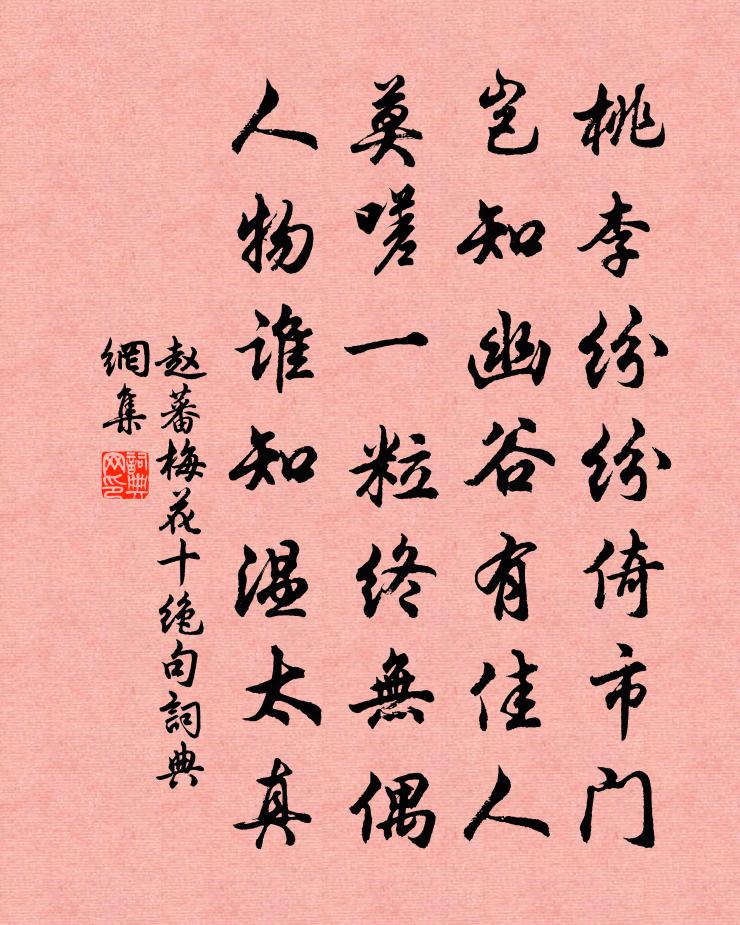 桃李纷纷倚市门
岂知幽谷有佳人
莫嗟一粒终無偶
人物谁知温太真
赵蕃梅花十绝句詞典
網集
詞典
网印